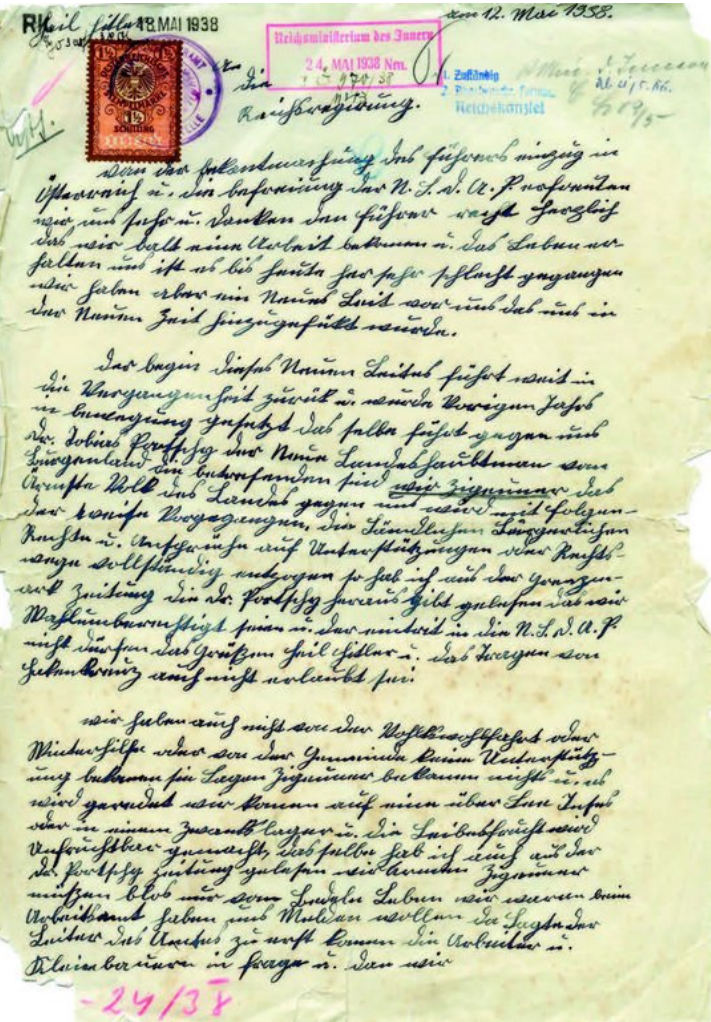 RK 18. MAI 1938
am 12. Mai 1938.
Heil Hitler
Reichsministerium des Innern
24. MAI 1938 Nm.
An
die
Reichsregierung.
1. Zuständig
Reichskanzlei
1½
SCHILLING
von der bekantmachung des führers einzug in
Österreich u. die befreiung der N. S. D. A. P. erfreuten
wir uns sehr u. danken den führer recht herzlich
das wir balt eine Arbeit bekomen u. das Leben er-
halten uns ist es bis heute her sehr schlecht gegangen
wir haben aber ein Neues Leit vor uns das uns in
der Neuen Zeit hinzugefükt wurde.
der begin dieses Neuen Leites führt weit in
die Vergangenheit zurük u. wurde Vorigen Jahrs
in bewegung gesetzt das selbe führt gegen uns
Dr. Tobias Portschy der Neue Landeshaubtman vom
Burgenland die betrefenden sind wir Zigeuner das
Ärmste Volk des Landes gegen uns wird mit folgen-
der weise Vorgegangen. die Ländlichen Bürgerlichen
Rechte u. Ansprüche auf Unterstützungen oder Rechts-
wege vollständig entzogen so hab ich aus der Grenzm-
ark Zeitung die Dr. Portschy heraus gibt gelesen das wir
Wahlunberechtigt seien u. der eintrit in die N. S. D. A. P.
nicht dürfen das Grüßen Heil Hitler u. das Tragen von
Hakenkreuz auch nicht erlaubt sei.
wir haben auch nicht von der Vohlkswohlfahrt oder
Winterhilfe oder von der Gemeinde keine Unterstütz-
ung bekomen sie Sagen Zigeuner bekomen nichts u. es
wird geredet wir komen auf eine über See Insel
oder in einem Zwankslager u. die Leibesfrucht wird
Unfruchtbar gemacht, das selbe hab ich auch aus der
Dr. Portschy Zeitung gelesen wir Armen Zigeuner
müßen blos nur vom Bedeln Leben wir waren beim
Arbeitsamt haben uns Melden wollen da Sagte der
Leiter des Amtes zu erst komen die Arbeiter u.
Kleinbauern in frage u. dan wir
-24/38